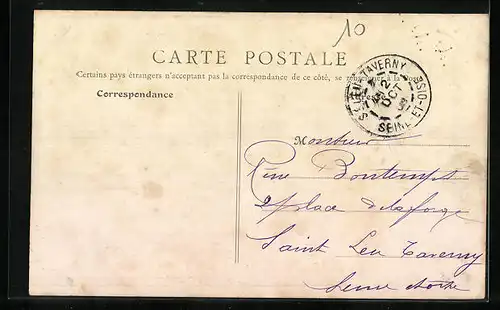 10
CARTE POSTALE
Certains pays étrangers n'acceptant pas la correspondance de ce côté, se renseigner à la Poste
Correspondance
ST LEU-TAVERNY
12
OCT
SEINE-ET-OISE
Monsieur
René Bontemps
place de la forge
Saint Leu Taverny
Seine et oise